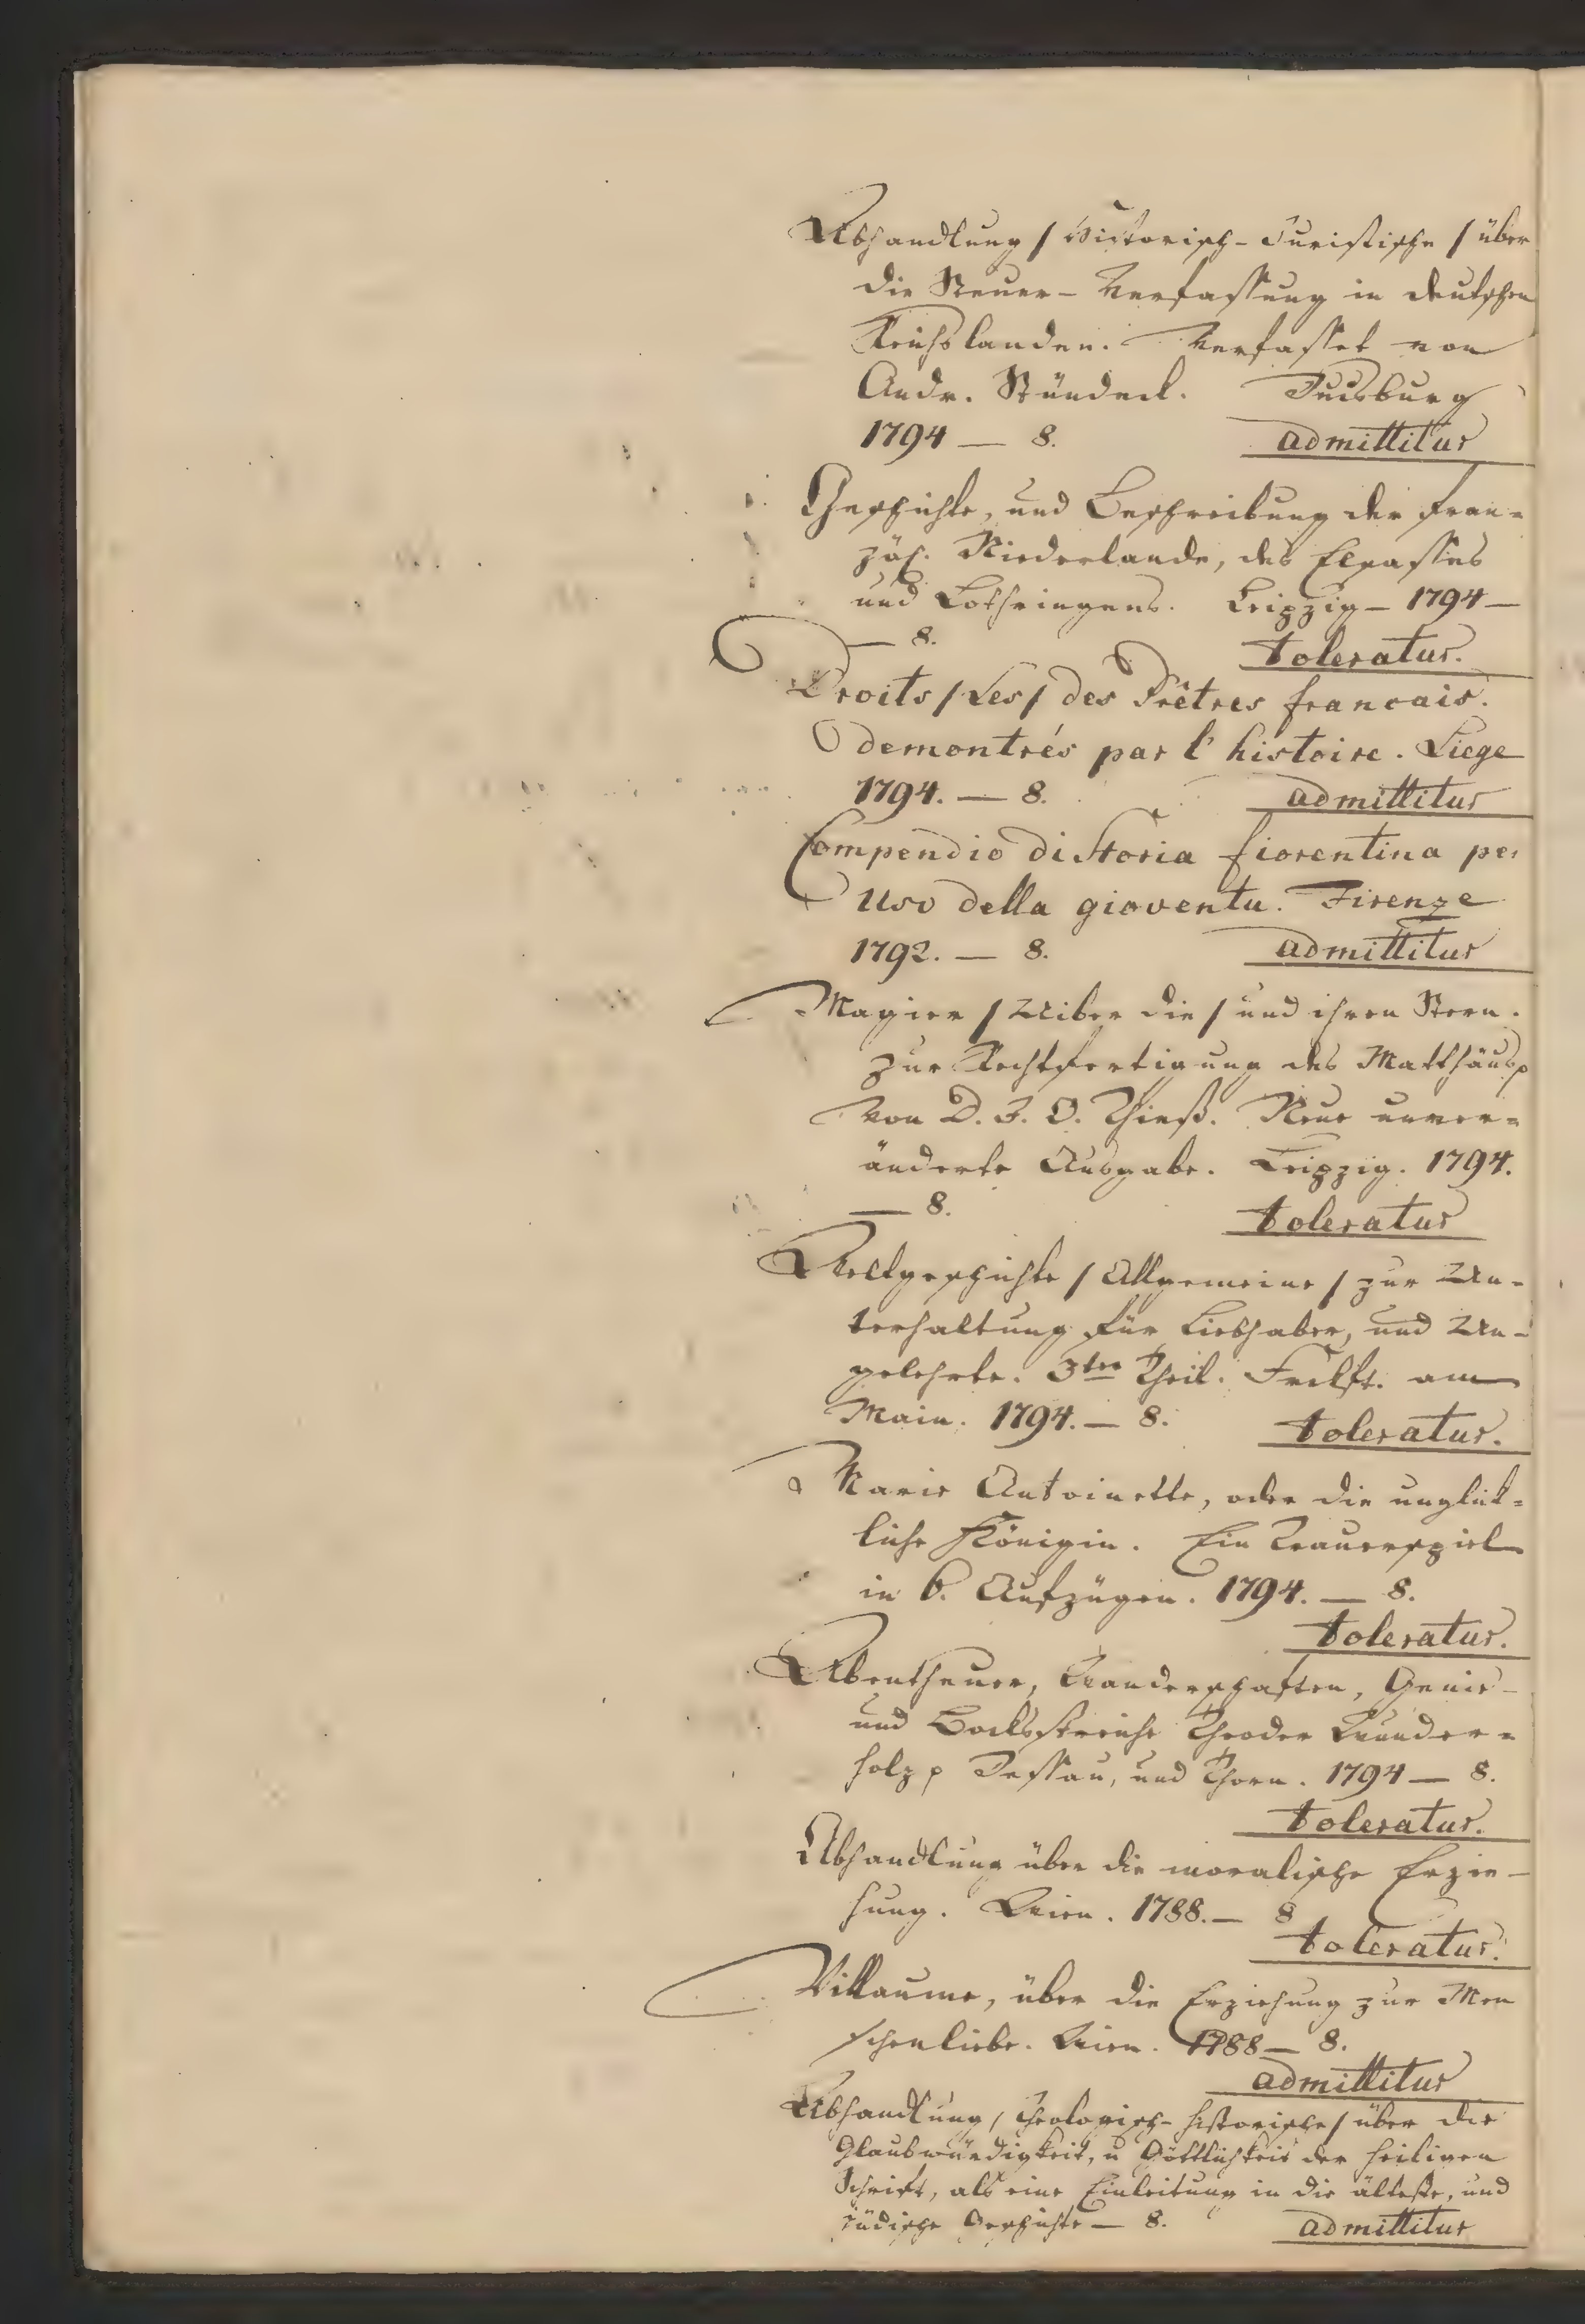 Abhandlung / Historisch-Juristische / über
die Steuer-Verfassung in deutschen
Reichslanden. Verfasset von
Andr. Stündeck. Duisburg
1794 — 8. admittitur
Geschichte, und Beschreibung der fran=
zös. Niederlande, des Elsasses
und Lothringens. Leipzig — 1794 —
— 8. toleratur.
Droits / Les / des Prêtres francais.
demontrés par l'histoire. Liege
1794. — 8. admittitur
Compendio di Storia fiorentina per
uso della gioventu. Firenze
1792. — 8. admittitur
Magier / Uiber die / und ihren Stern.
zur Rechtfertigung des Matthäus p
von D. J. O. Thieß. Neue unver=
änderte Ausgabe. Leipzig. 1794.
— 8. toleratur
Weltgeschichte / Allgemeine / zur Un-
terhaltung für Liebhaber, und Un-
gelehrte. 3ter Theil. Frckft. am
Main. 1794. — 8. toleratur.
Marie Antoinette, oder die unglük=
liche Königin. Ein Trauerspiel
in 6. Aufzügen. 1794. — 8.
toleratur.
Abentheuer, Wanderschaften, Genie-
und Bocksstreiche Theodor Wunder=
holz p Dessau, und Thorn. 1794 — 8.
toleratur.
Abhandlung über die moralische Erzie-
hung. Wien. 1788. — 8
toleratur.
Villaume, über die Erziehung zur Men
schenliebe. Wien. 1788 — 8.
admittitur
Abhandlung / Theologisch-historische / über die
Glaubwürdigkeit, u Göttlichkeit der heiligen
Schrift, als eine Einleitung in die älteste, und
jüdische Geschichte — 8. admittitur